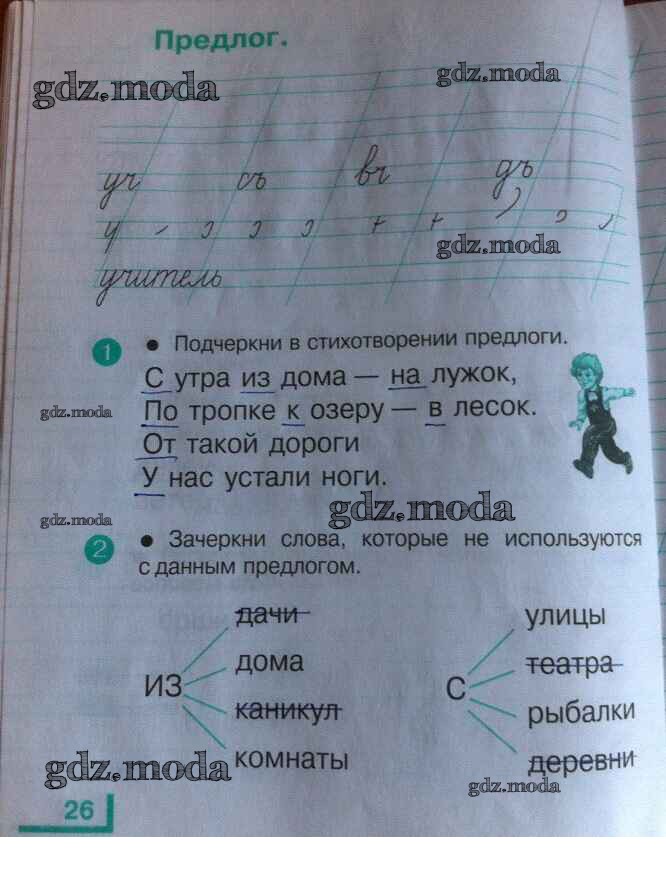 Предлог.
gdz.moda
gdz.moda
уч съ вч дъ
gdz.moda
учитель
1 • Подчеркни в стихотворении предлоги.
С утра из дома — на лужок,
gdz.moda
По тропке к озеру — в лесок.
От такой дороги
У нас устали ноги.
gdz.moda
gdz.moda
2 • Зачеркни слова, которые не используются
с данным предлогом.
из
дачи
дома
каникул
комнаты
с
улицы
театра
рыбалки
деревни
gdz.moda
gdz.moda
26